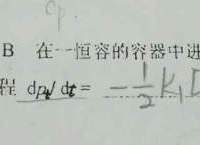 Cp.
B 在一恒容的容器中进
程 dpₜ/dt = -½K₁[